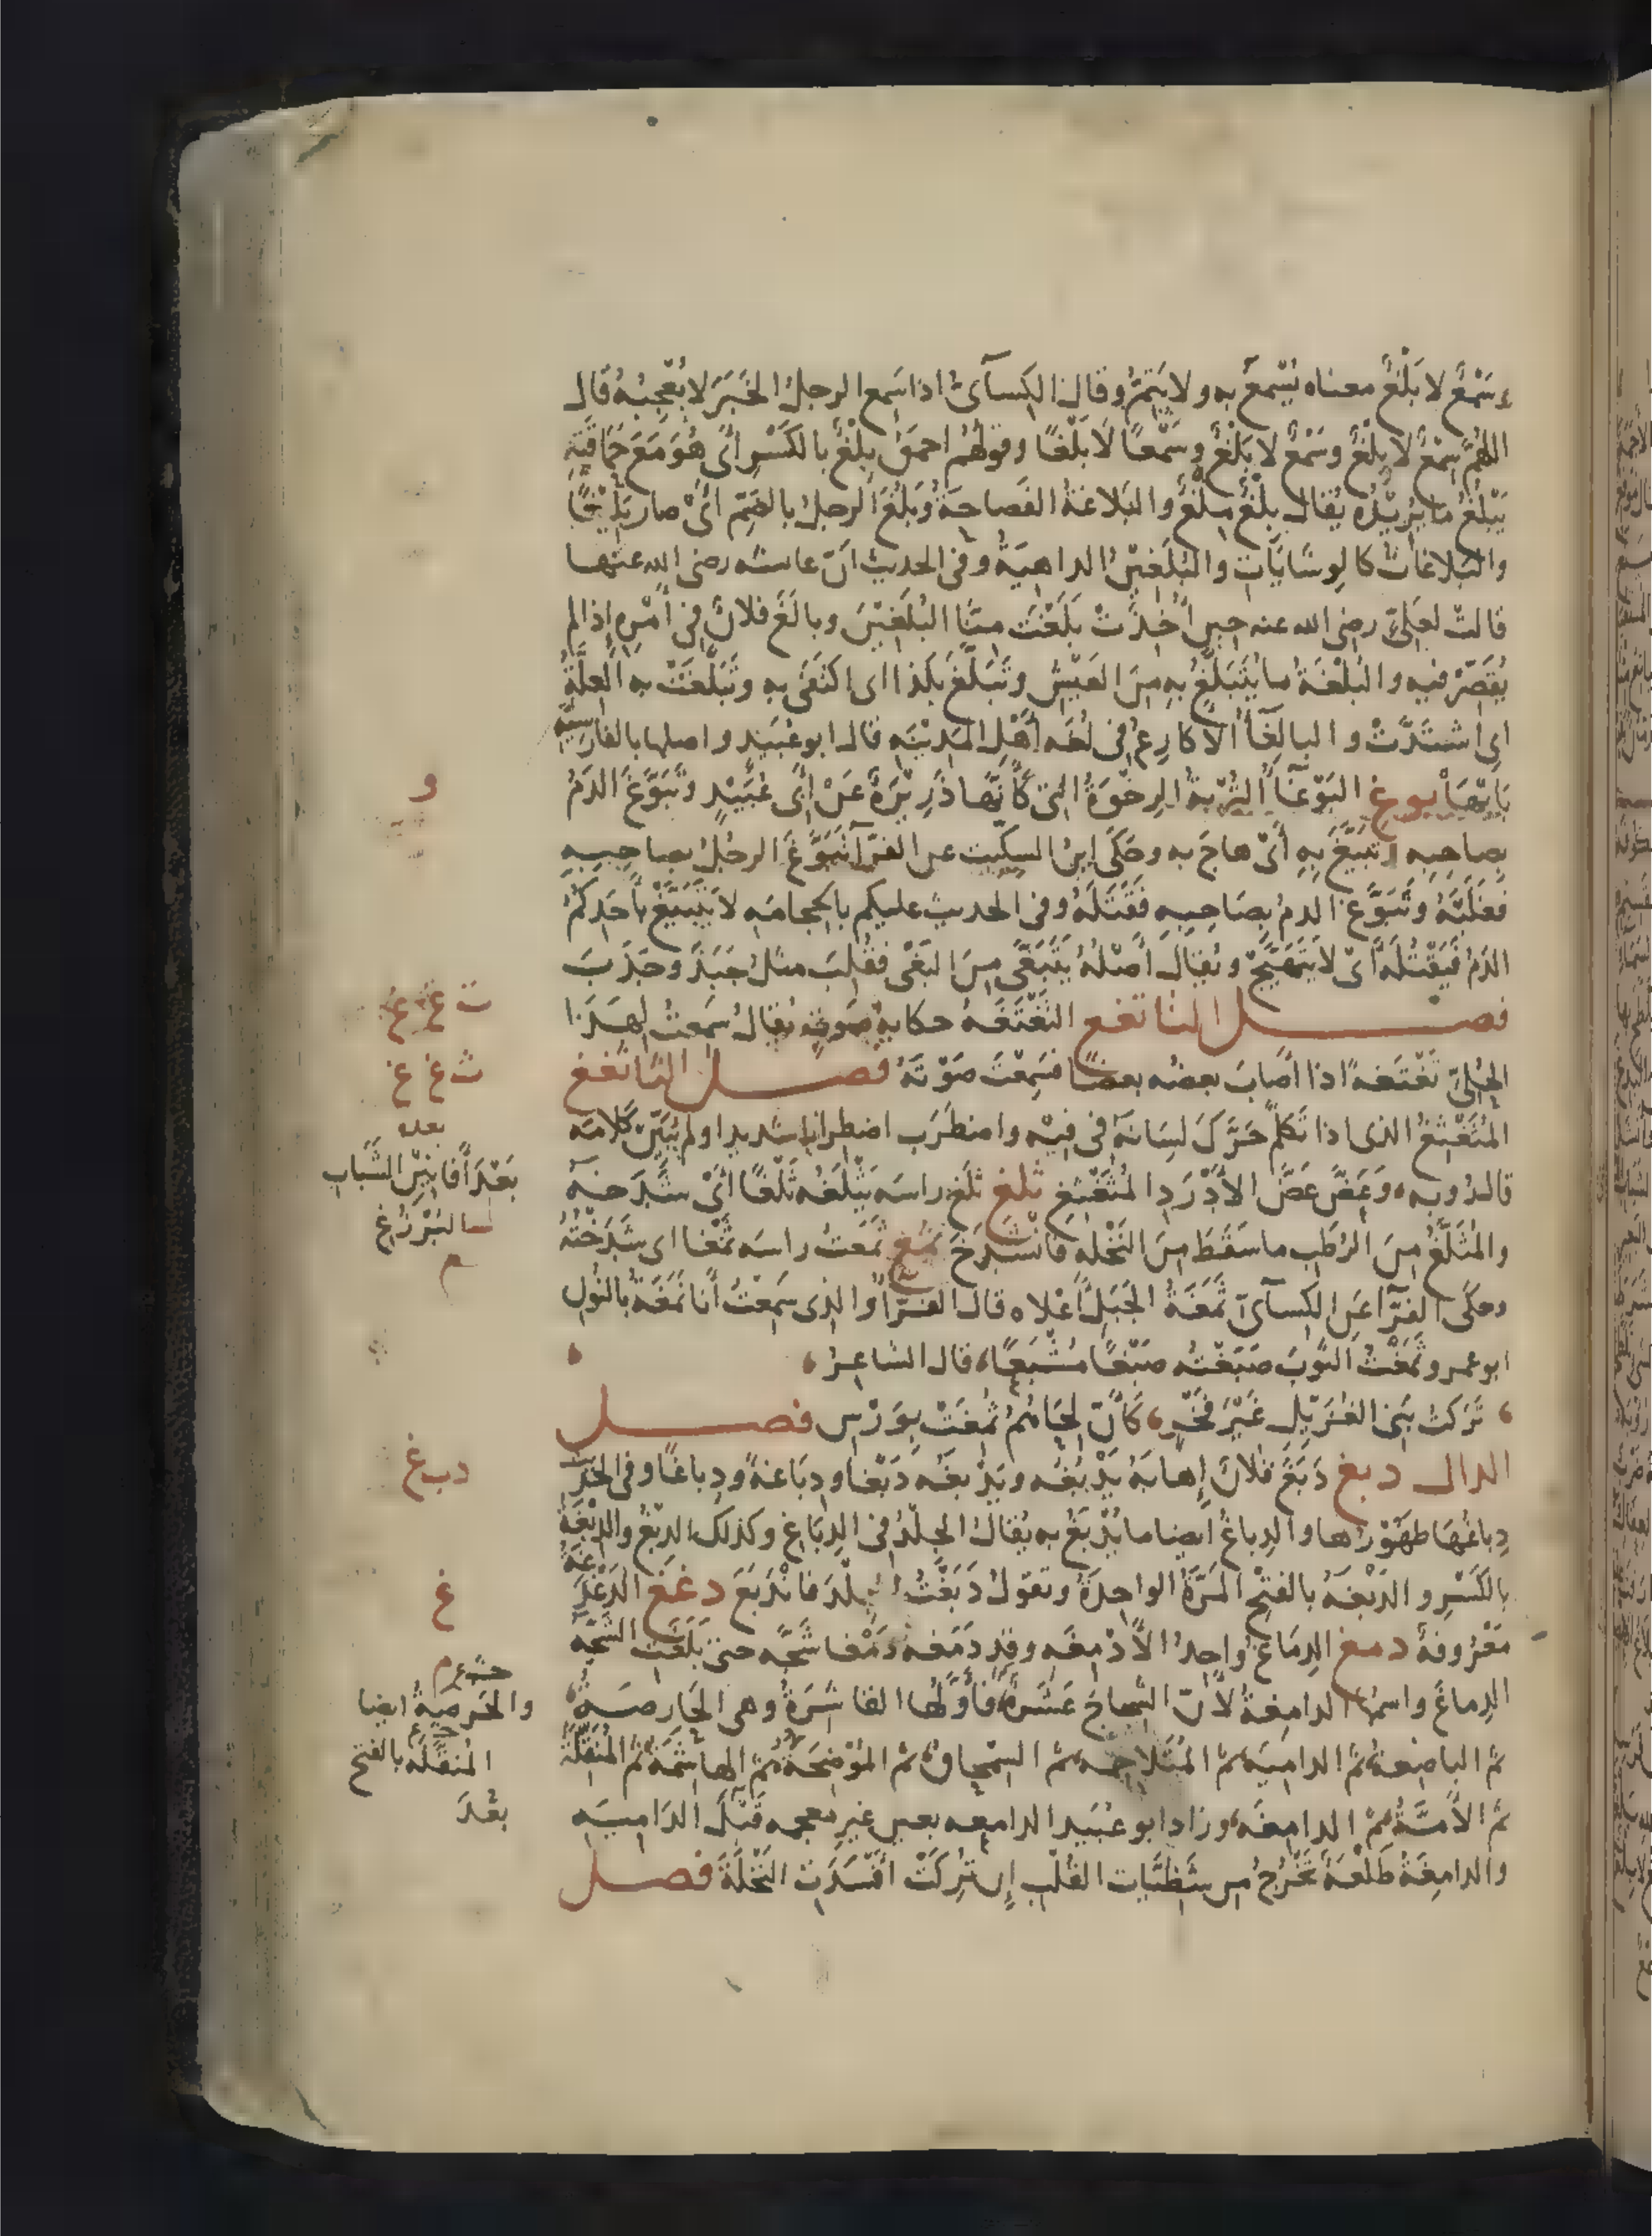 وسَمْعٌ لا بَلْغٌ معناه يُسْمعُ به ولا يَتِمُّ وقال الكِسآئىُّ اذا سَمِع الرجلُ الخَبَرَ لا يُعْجِبُهُ قال
اللهُمَّ سِمْعٌ لا بِلْغٌ وسَمْعٌ لا بَلْغٌ وسَمْعًا لَا بَلْغًا وقولهُم احمقُ بِلْغٌ بالكَسْرِ أىْ هُوَ مَعَ حَمَاقَتِهِ
يَبْلُغُ مَا يُرِيْدُه يُقالُ بِلْغٌ مِلْغٌ والبَلاغَةُ الفَصاحَةُ وَبَلُغَ الرجلُ بالضَمِّ أىْ صار بَلِيْغًا
والبَلاغَاتُ كالوِشَايَاتِ والبُلَغِيْنُ الداهِيَةُ وفى الحديثِ أنّ عاىشه رضى الله عنها
قالتْ لعَلِىٍّ رضى الله عنه حين أُخِذَتْ بَلَغْتَ مِنَّا البُلَغِيْنَ وبالَغَ فلانٌ فى أمْرِهِ إذا لم
يُقَصِّرْ فيه والبُلْغَةُ ما يُتَبَلَّغُ بِهِ مِنَ العَيْشِ وتَبَلَّغَ بكَذا اى اكْتَفَى به وتَبَلَّغَتْ به العِلَّةُ
اى اشتَدَّتْ والبالِغَآءُ الأكارِعُ فى لغَه أهْلِ المَدِيْنَه قال ابو عُبَيْدٍ واصلها بالفارسِيَّه
بَايْهَا بوغ البَوْغَآءُ التُرْبةُ الرِخْوَةُ التى كَأنَّهَا ذَرِيْرَةٌ عَنْ أبى عُبَيْدٍ وتَبَوَّغَ الدَمُ
بصاحِبِه وتَبَيَّغَ بِهِ أىْ هاجَ به وحَكَى ابنُ السِكِّيت عن الفرّآء تَبَوَّغَ الرجُلُ بصاحِبِهِ
فغَلَبَهُ وتَبَوَّغَ الدمُ بصَاحِبِهِ فقَتَلَهُ وفى الحديث عليكم بالحِجامَه لا يَتَبَيَّغْ بأحَدِكُمُ
الدَمُ فَيَقْتُلَهُ أىْ لا يَتَهَيَّجْ ويُقالُ أصْلُهُ يَتَبَغَّى مِنَ البَغْىِ فقُلِبَ مثلُ جَبَذَ وجَذَبَ
فصـــل التا تغغ التَغْتَغَه حكايةُ صَوتٍ يُقالُ سَمِعتُ لِهَذَا
الحُلِىِّ تَغْتَغَةً اذا أصابَ بعضُه بعضًا فسَمِعْتَ صَوْتَهُ فصـــل الثا ثغغ
المُثَغْثِغُ الذى اذا تَكلَّمَ حَرَّكَ لِسَانَهُ فى فِيْه واضطَرَب اضطرابا شديدا ولم يُبَيِّنْ كَلامَه
قال رُوبه، وَعَضَّ عَضَّ الأدْرَدِ المُثَغْثِغِ ثلغ ثَلَغَ راسَه يَثْلَغُه ثَلْغًا أىْ شَدَخَهُ
والمُثَلَّغُ مِنَ الرُطَبِ ما سَقَطَ مِنَ النَخْلَهِ فَانْشَدَخَ ثمغ ثَمَغتُ راسَه ثَمْغا اى شَدَخْتُهُ
وحكَى الفرّآء عَنِ الكِسآئىّ ثَمَغَةُ الجَبَلِ أعْلاه قال الفَرّاءُ والذى سَمِعْتُ أنا نَمَغَةٌ بالنُونِ
ابو عمرو ثَمَغْتُ الثَوبَ صَبَغْتُه صَبْغًا مُشْبَعًا، قال الشاعِرُ،
، تَرَكتُ بَنِى الغُزَيّلِ غَيْرَ فَخْرٍ، كَأنّ لِحَاهُمُ ثُمِغَتْ بِوَرْسٍ فصـــل
الدال دبغ دَبَغَ فلانٌ إهابَهُ يَدْبُغُه ويَدْبَغُه دَبْغا ودِبَاغةً ودِباغًا وفى الخَبَرِ
دِباغُهَا طَهُوْرُها والدِباغُ ايضا ما يُدْبَغُ به يُقالُ الجِلْدُ فى الدِبَاغِ وكذلك الدِبْغُ والدِبْغَةُ
بالكَسْرِ والدَبْغَةُ بالفتحِ المَرَّةُ الواحِدَةُ وتقولُ دَبَغْتُ الجِلْدَ فانْدَبَغَ دغغ الدَغْدَغَةُ
مَعْرُوفةٌ دمغ الدِمَاغُ واحِدُ الأدْمِغَه وقد دَمَغه دَمْغا شَجَّه حتى بَلَغَتِ الشَجَّهُ
الدِماغَ واسمُها الدامِغةُ لأنّ الشِجاجَ عَشَرةٌ، فأوَّلُها القاشِرَةُ وهى الحَارِصَةُ،
ثم الباضِعةُ، ثم الدامِيَه، ثم المُتَلاحِمه، ثم السِمحاقُ، ثم المُوْضِحَةُ، ثم الهاشِمَةُ، ثم المُنَقِّلَةُ
ثم الآمّةُ، ثم الدامِغَه، وزاد ابو عُبَيد الدامِعه بعين غيرِ مُعجمه قَبْلَ الدَامِيَه
والدامِغَةُ طَلْعَةٌ تَخْرُجُ من شَظِيّاتِ القُلْبِ إن تُرِكَتْ أفْسَدَتِ النَخْلَةَ فصـــل
و
ت غ غ
ث غ غ
بعده
بَعْدَ أفانِيْنِ الشَبابِ
البُرْزُغِ
م
دبغ
غ
والحَرصَةُ ايضا
المُنَقَّلَه بالفتح
بعْدَ